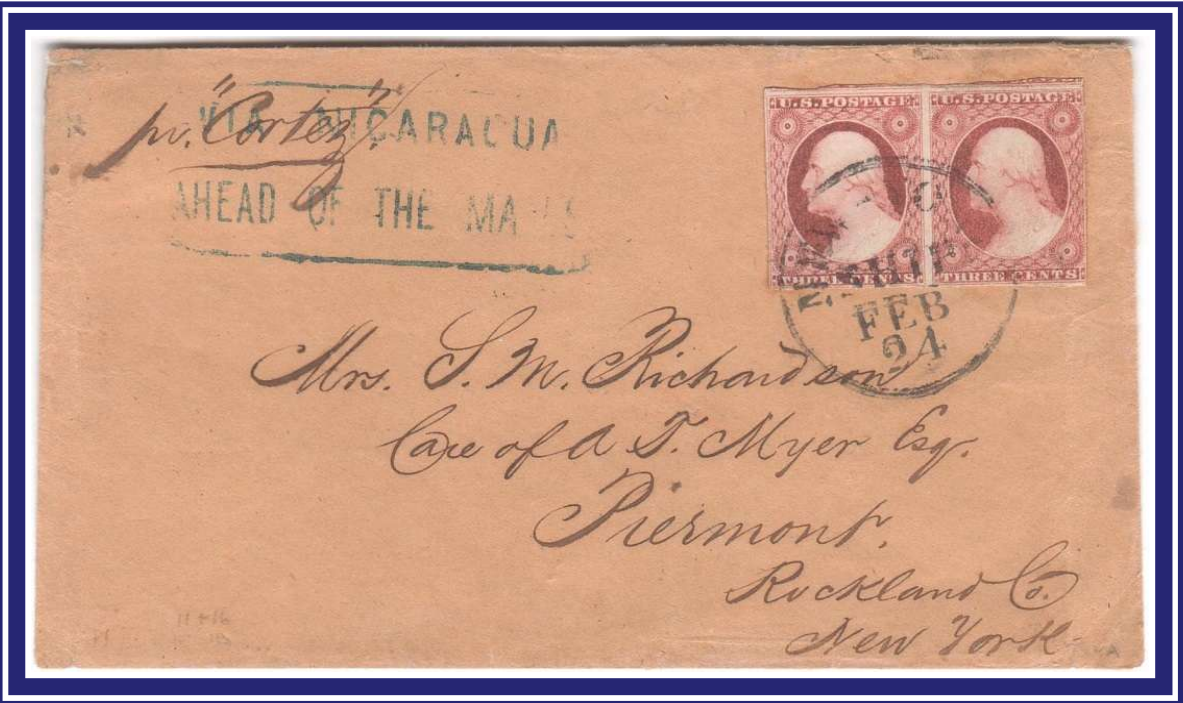 pr. "Cortez".
VIA NICARAGUA
AHEAD OF THE MAILS
U.S. POSTAGE U.S. POSTAGE
THREE CENTS THREE CENTS
NEW
SHIP
FEB
24
Mrs. S. M. Richardson
Care of A T. Myer Esq.
Piermont.
Rockland Co.
New York